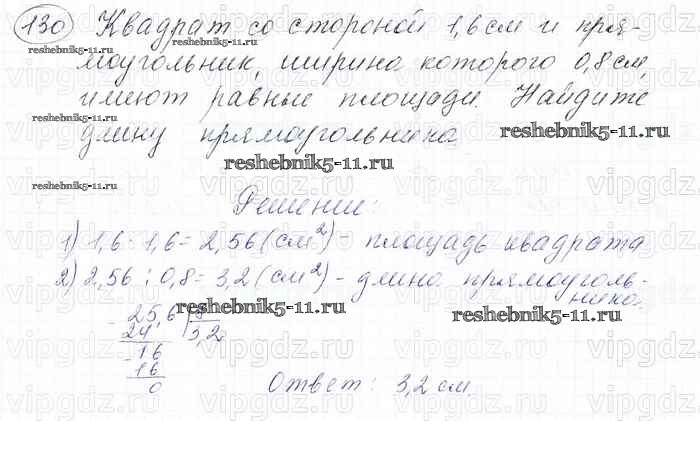 130 Квадрат со стороной 1,6 см и пря-
моугольник, ширина которого 0,8 см,
имеют равные площади. Найдите
длину прямоугольника.
Решение:
1) 1,6 · 1,6 = 2,56 (см²) - площадь квадрата
2) 2,56 : 0,8 = 3,2 (см²) - длина прямоуголь-
ника.
25,6 8
24 3,2
16
16
0
Ответ: 3,2 см.
reshebnik5-11.ru
reshebnik5-11.ru
reshebnik5-11.ru
reshebnik5-11.ru
reshebnik5-11.ru
reshebnik5-11.ru
reshebnik5-11.ru
vipgdz.ru